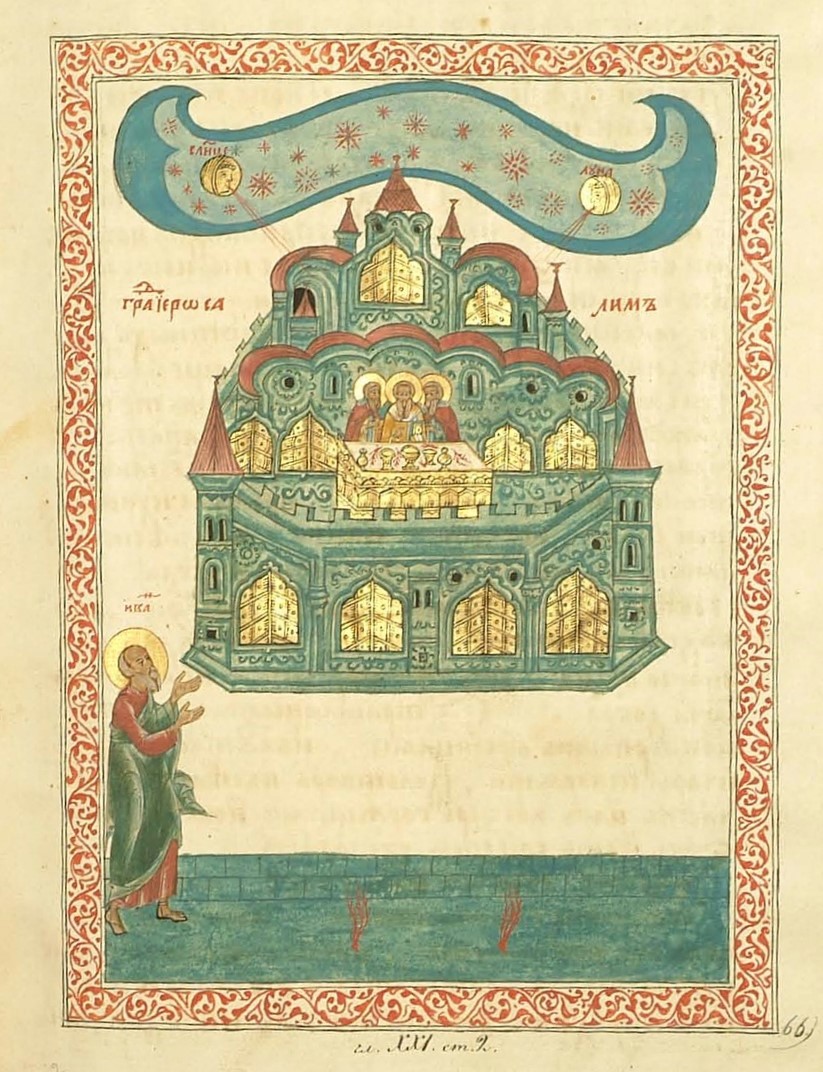 слн҃це
луна
граⷣ їерѡса лимъ
гл. XXI. ст. 2.
66)